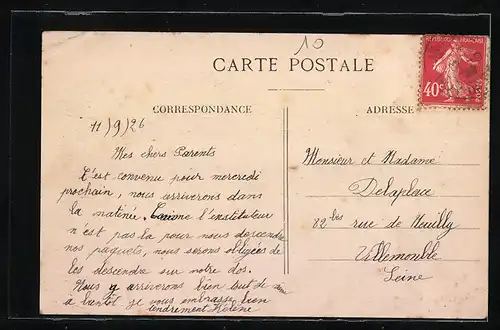 10
CARTE POSTALE
REPUBLIQUE FRANÇAISE
40c
CORRESPONDANCE
ADRESSE
11/9/26
Mes chers Parents
C'est convenu pour mercredi
prochain, nous arriverons dans
la matinée. Comme l'instituteur
n'est pas là pour nous descendre
nos paquets, nous serons obligées de
les descendre sur notre dos.
Nous y arriverons bien tout de
à bientôt je vous embrasse bien
tendrement Hélène
Monsieur et Madame
Delaplace
82 bis rue de Neuilly
Villemomble
Seine